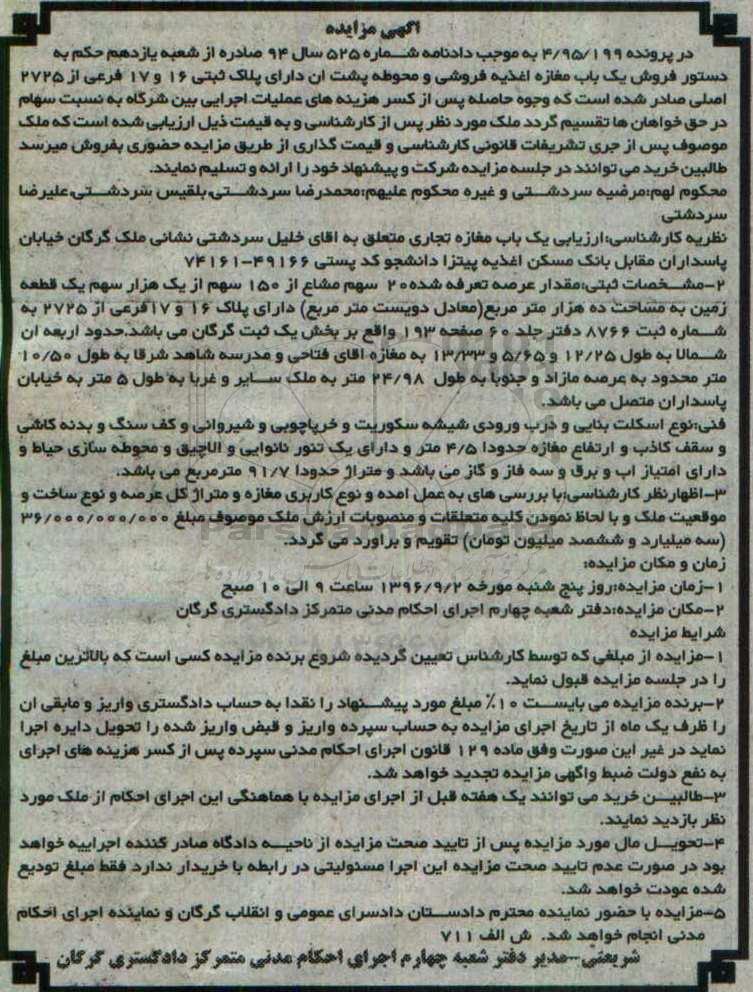 آگهی مزایده
در پرونده ۴/۹۵/۱۹۹ به موجب دادنامه شماره ۵۲۵ سال ۹۴ صادره از شعبه یازدهم حکم به
دستور فروش یک باب مغازه اغذیه فروشی و محوطه پشت ان دارای پلاک ثبتی ۱۶ و ۱۷ فرعی از ۲۷۲۵
اصلی صادر شده است که وجوه حاصله پس از کسر هزینه های عملیات اجرایی بین شرکاء به نسبت سهام
در حق خواهان ها تقسیم گردد ملک مورد نظر پس از کارشناسی و به قیمت ذیل ارزیابی شده است که ملک
موصوف پس از جری تشریفات قانونی کارشناسی و قیمت گذاری از طریق مزایده حضوری بفروش میرسد
طالبین خرید می توانند در جلسه مزایده شرکت و پیشنهاد خود را ارائه و تسلیم نمایند.
محکوم لهم:مرضیه سردشتی و غیره محکوم علیهم:محمدرضا سردشتی،بلقیس سردشتی،علیرضا
سردشتی
نظریه کارشناسی:ارزیابی یک باب مغازه تجاری متعلق به اقای خلیل سردشتی نشانی ملک گرگان خیابان
پاسداران مقابل بانک مسکن اغذیه پیتزا دانشجو کد پستی ۴۹۱۶۶-۷۴۱۶۱
۲-مشخصات ثبتی:مقدار عرصه تعرفه شده ۲۰ سهم مشاع از ۱۵۰ سهم از یک هزار سهم یک قطعه
زمین به مساحت ده هزار متر مربع(معادل دویست متر مربع) دارای پلاک ۱۶ و ۱۷فرعی از ۲۷۲۵ به
شماره ثبت ۸۷۶۶ دفتر جلد ۶۰ صفحه ۱۹۳ واقع بر بخش یک ثبت گرگان می باشد.حدود اربعه ان
شمالا به طول ۱۲/۲۵ و ۵/۶۵ و ۱۳/۳۳ به مغازه اقای فتاحی و مدرسه شاهد شرقا به طول ۱۰/۵۰
متر محدود به عرصه مازاد و جنوبا به طول ۲۴/۹۸ متر به ملک سایر و غربا به طول ۵ متر به خیابان
پاسداران متصل می باشد.
فنی:نوع اسکلت بنایی و درب ورودی شیشه سکوریت و خرپاچوبی و شیروانی و کف سنگ و بدنه کاشی
و سقف کاذب و ارتفاع مغازه حدودا ۴/۵ متر و دارای یک تنور نانوایی و الاچیق و محوطه سازی حیاط و
دارای امتیاز اب و برق و سه فاز و گاز می باشد و متراژ حدودا ۹۱/۷ مترمربع می باشد.
۳-اظهارنظر کارشناسی:با بررسی های به عمل امده و نوع کاربری مغازه و متراژ کل عرصه و نوع ساخت و
موقعیت ملک و با لحاظ نمودن کلیه متعلقات و منصوبات ارزش ملک موصوف مبلغ ۳۶/۰۰۰/۰۰۰/۰۰۰
(سه میلیارد و ششصد میلیون تومان) تقویم و براورد می گردد.
زمان و مکان مزایده:
۱-زمان مزایده:روز پنج شنبه مورخه ۱۳۹۶/۹/۲ ساعت ۹ الی ۱۰ صبح
۲-مکان مزایده:دفتر شعبه چهارم اجرای احکام مدنی متمرکز دادگستری گرگان
شرایط مزایده
۱-مزایده از مبلغی که توسط کارشناس تعیین گردیده شروع برنده مزایده کسی است که بالاترین مبلغ
را در جلسه مزایده قبول نماید.
۲-برنده مزایده می بایست ۱۰٪ مبلغ مورد پیشنهاد را نقدا به حساب دادگستری واریز و مابقی ان
را ظرف یک ماه از تاریخ اجرای مزایده به حساب سپرده واریز و قبض واریز شده را تحویل دایره اجرا
نماید در غیر این صورت وفق ماده ۱۲۹ قانون اجرای احکام مدنی سپرده پس از کسر هزینه های اجرای
به نفع دولت ضبط واگهی مزایده تجدید خواهد شد.
۳-طالبین خرید می توانند یک هفته قبل از اجرای مزایده با هماهنگی این اجرای احکام از ملک مورد
نظر بازدید نمایند.
۴-تحویل مال مورد مزایده پس از تایید صحت مزایده از ناحیه دادگاه صادر کننده اجراییه خواهد
بود در صورت عدم تایید صحت مزایده این اجرا مسئولیتی در رابطه با خریدار ندارد فقط مبلغ تودیع
شده عودت خواهد شد.
۵-مزایده با حضور نماینده محترم دادستان دادسرای عمومی و انقلاب گرگان و نماینده اجرای احکام
مدنی انجام خواهد شد. ش الف ۷۱۱
شریعتی-مدیر دفتر شعبه چهارم اجرای احکام مدنی متمرکز دادگستری گرگان